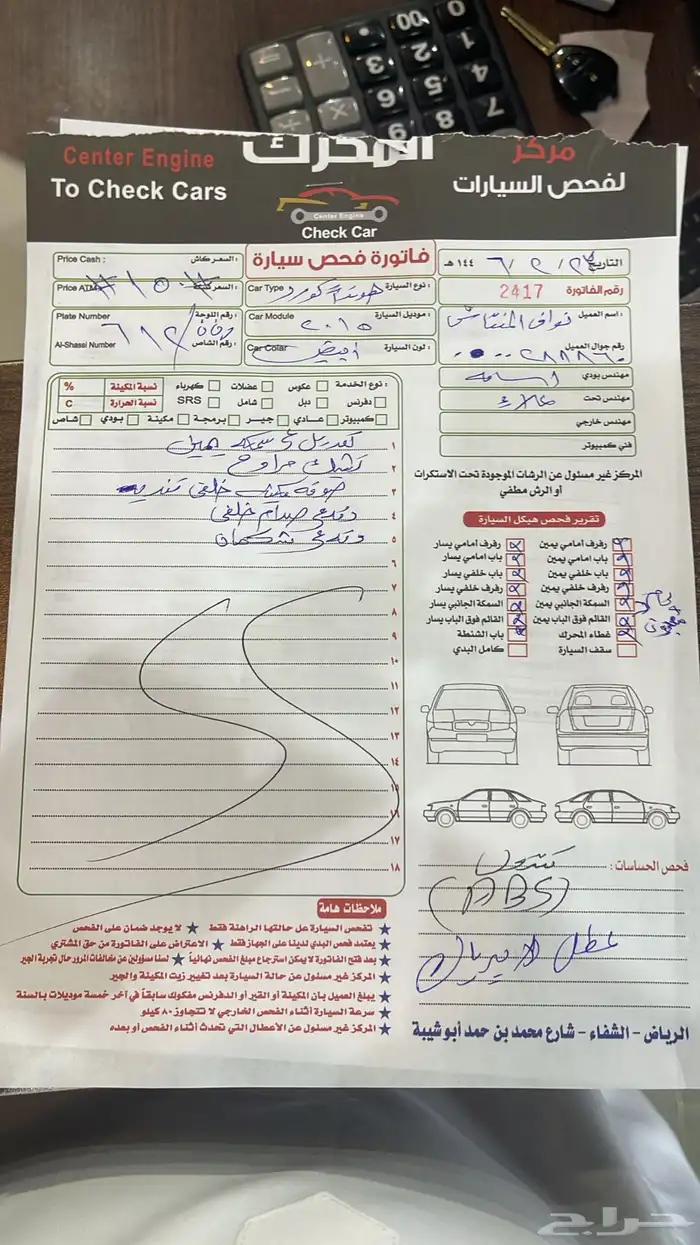 Center Engine
To Check Cars
المحرك
Center Engine
Check Car
مركز
لفحص السيارات
Price Cash : السعر كاش :
Price ATM
فاتورة فحص سيارة
التاريخ ١٤٤ هـ
رقم الفاتورة 2417
Car Type هوندا اكورد نوع السيارة :
Plate Number رقم اللوحة :
٦١٢
Al-Shassi Number رقم الشاص :
Car Module ٢٠١٥ موديل السيارة :
Car Colar ابيض لون السيارة :
اسم العميل : نواف
رقم جوال العميل
مهندس بودي اسامه
مهندس تحت علاء
مهندس خارجي
فني كمبيوتر
نوع الخدمة : عكوس عضلات كهرباء نسبة المكينة %
دفرنس دبل شامل SRS نسبة الحرارة C
كمبيوتر عادي جير برمجة مكينة بودي شاص
١
٢ مراوح
٣ خلفي
٤ صدام خلفي
٥ شكمان
٦
٧
٨
٩
١٠
١١
١٢
١٣
١٤
١٥
١٦
١٧
١٨
المركز غير مسئول عن الرشات الموجودة تحت الاستكرات
أو الرش مطفي
تقرير فحص هيكل السيارة
رفرف أمامي يمين رفرف أمامي يسار
باب امامي يمين باب امامي يسار
باب خلفي يمين باب خلفي يسار
رفرف خلفي يمين رفرف خلفي يسار
السمكة الجانبي يمين السمكة الجانبي يسار
القائم فوق الباب يمين القائم فوق الباب يسار
غطاء المحرك باب الشنطة
سقف السيارة كامل البدي
فحص الحساسات :
(ABS)
عطل
ملاحظات هامة
تفحص السيارة عل حالتها الراهنة فقط ★ لا يوجد ضمان على الفحص
يعتمد فحص البدي لدينا على الجهاز فقط ★ الاعتراض على الفاتورة من حق المشتري
بعد فتح الفاتورة لا يمكن استرجاع مبلغ الفحص نهائياً ★ لسنا مسؤولين عن مخالفات المرور حال تجربة الجير
المركز غير مسئول عن حالة السيارة بعد تغيير زيت المكينة والجير
يبلغ العميل بأن المكينة أو القير أو الدفرنس مفكوك سابقاً في آخر خمسة موديلات بالسنة
سرعة السيارة أثناء الفحص الخارجي لا تتجاوز ٨٠ كيلو
المركز غير مسئول عن الأعطال التي تحدث أثناء الفحص أو بعده
الرياض - الشفاء - شارع محمد بن حمد أبو شيبة
حراج